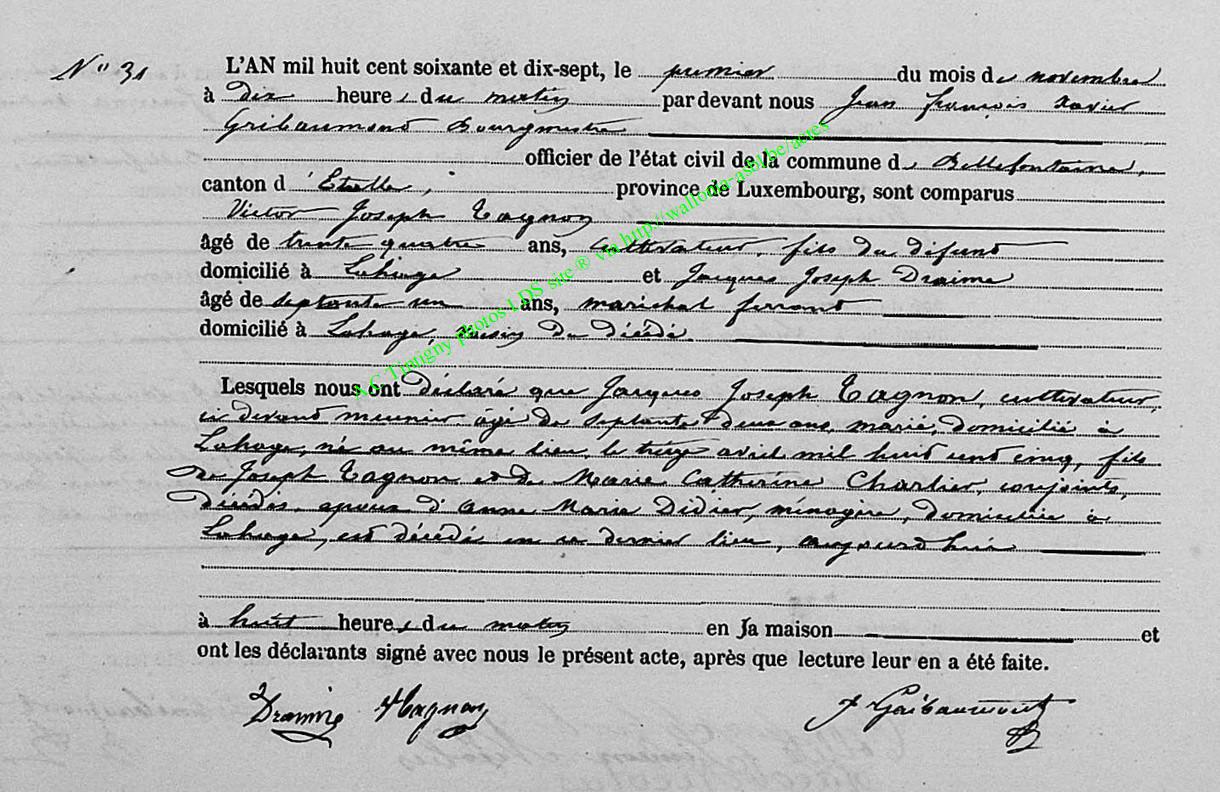 N° 31
L'AN mil huit cent soixante et dix-sept, le premier du mois de novembre
à dix heures du matin par devant nous Jean François Xavier
Gribaumont Bourgmestre
officier de l'état civil de la commune de Bellefontaine,
canton d'Etalle, province de Luxembourg, sont comparus
Victor Joseph Tagnon
âgé de trente quatre ans, cultivateur, fils du défunt
domicilié à Lahage et Jacques Joseph Draime
âgé de septante un ans, maréchal ferrant
domicilié à Lahage, voisin du décédé.
Lesquels nous ont déclaré que Jacques Joseph Tagnon, cultivateur,
ci devant meunier âgé de septante deux ans, marié, domicilié à
Lahage, né au même lieu, le treize avril mil huit cent cinq, fils
de Joseph Tagnon et de Marie Catherine Charlier, conjoints,
décédés, époux d'Anne Marie Didier, ménagère, domiciliée à
Lahage, est décédé en ce dernier lieu, aujourd'hui
à huit heures du matin en sa maison et
ont les déclarants signé avec nous le présent acte, après que lecture leur en a été faite.
Draime VTagnon J Gribaumont
A.C Tintigny photos LDS site ® via http://wallonia-asbl.be/actes